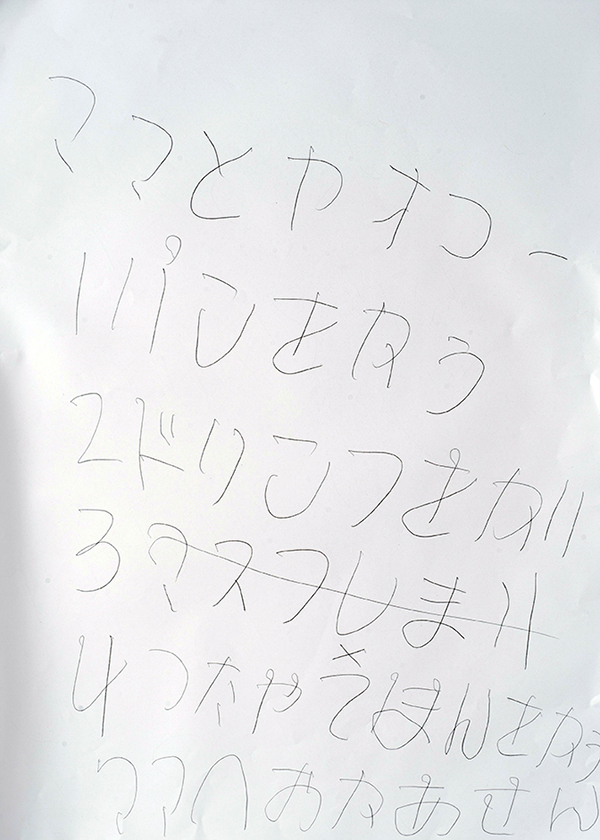 ママとや
1パンをかう
2ドリンクをかい
3マスクしまい
4つたやえほんをかう
ママへおかあさん